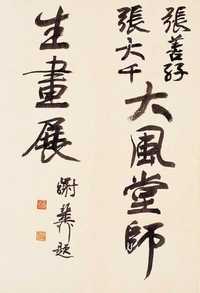 張善孖
張大千
大風堂師
生畫展
謝 題